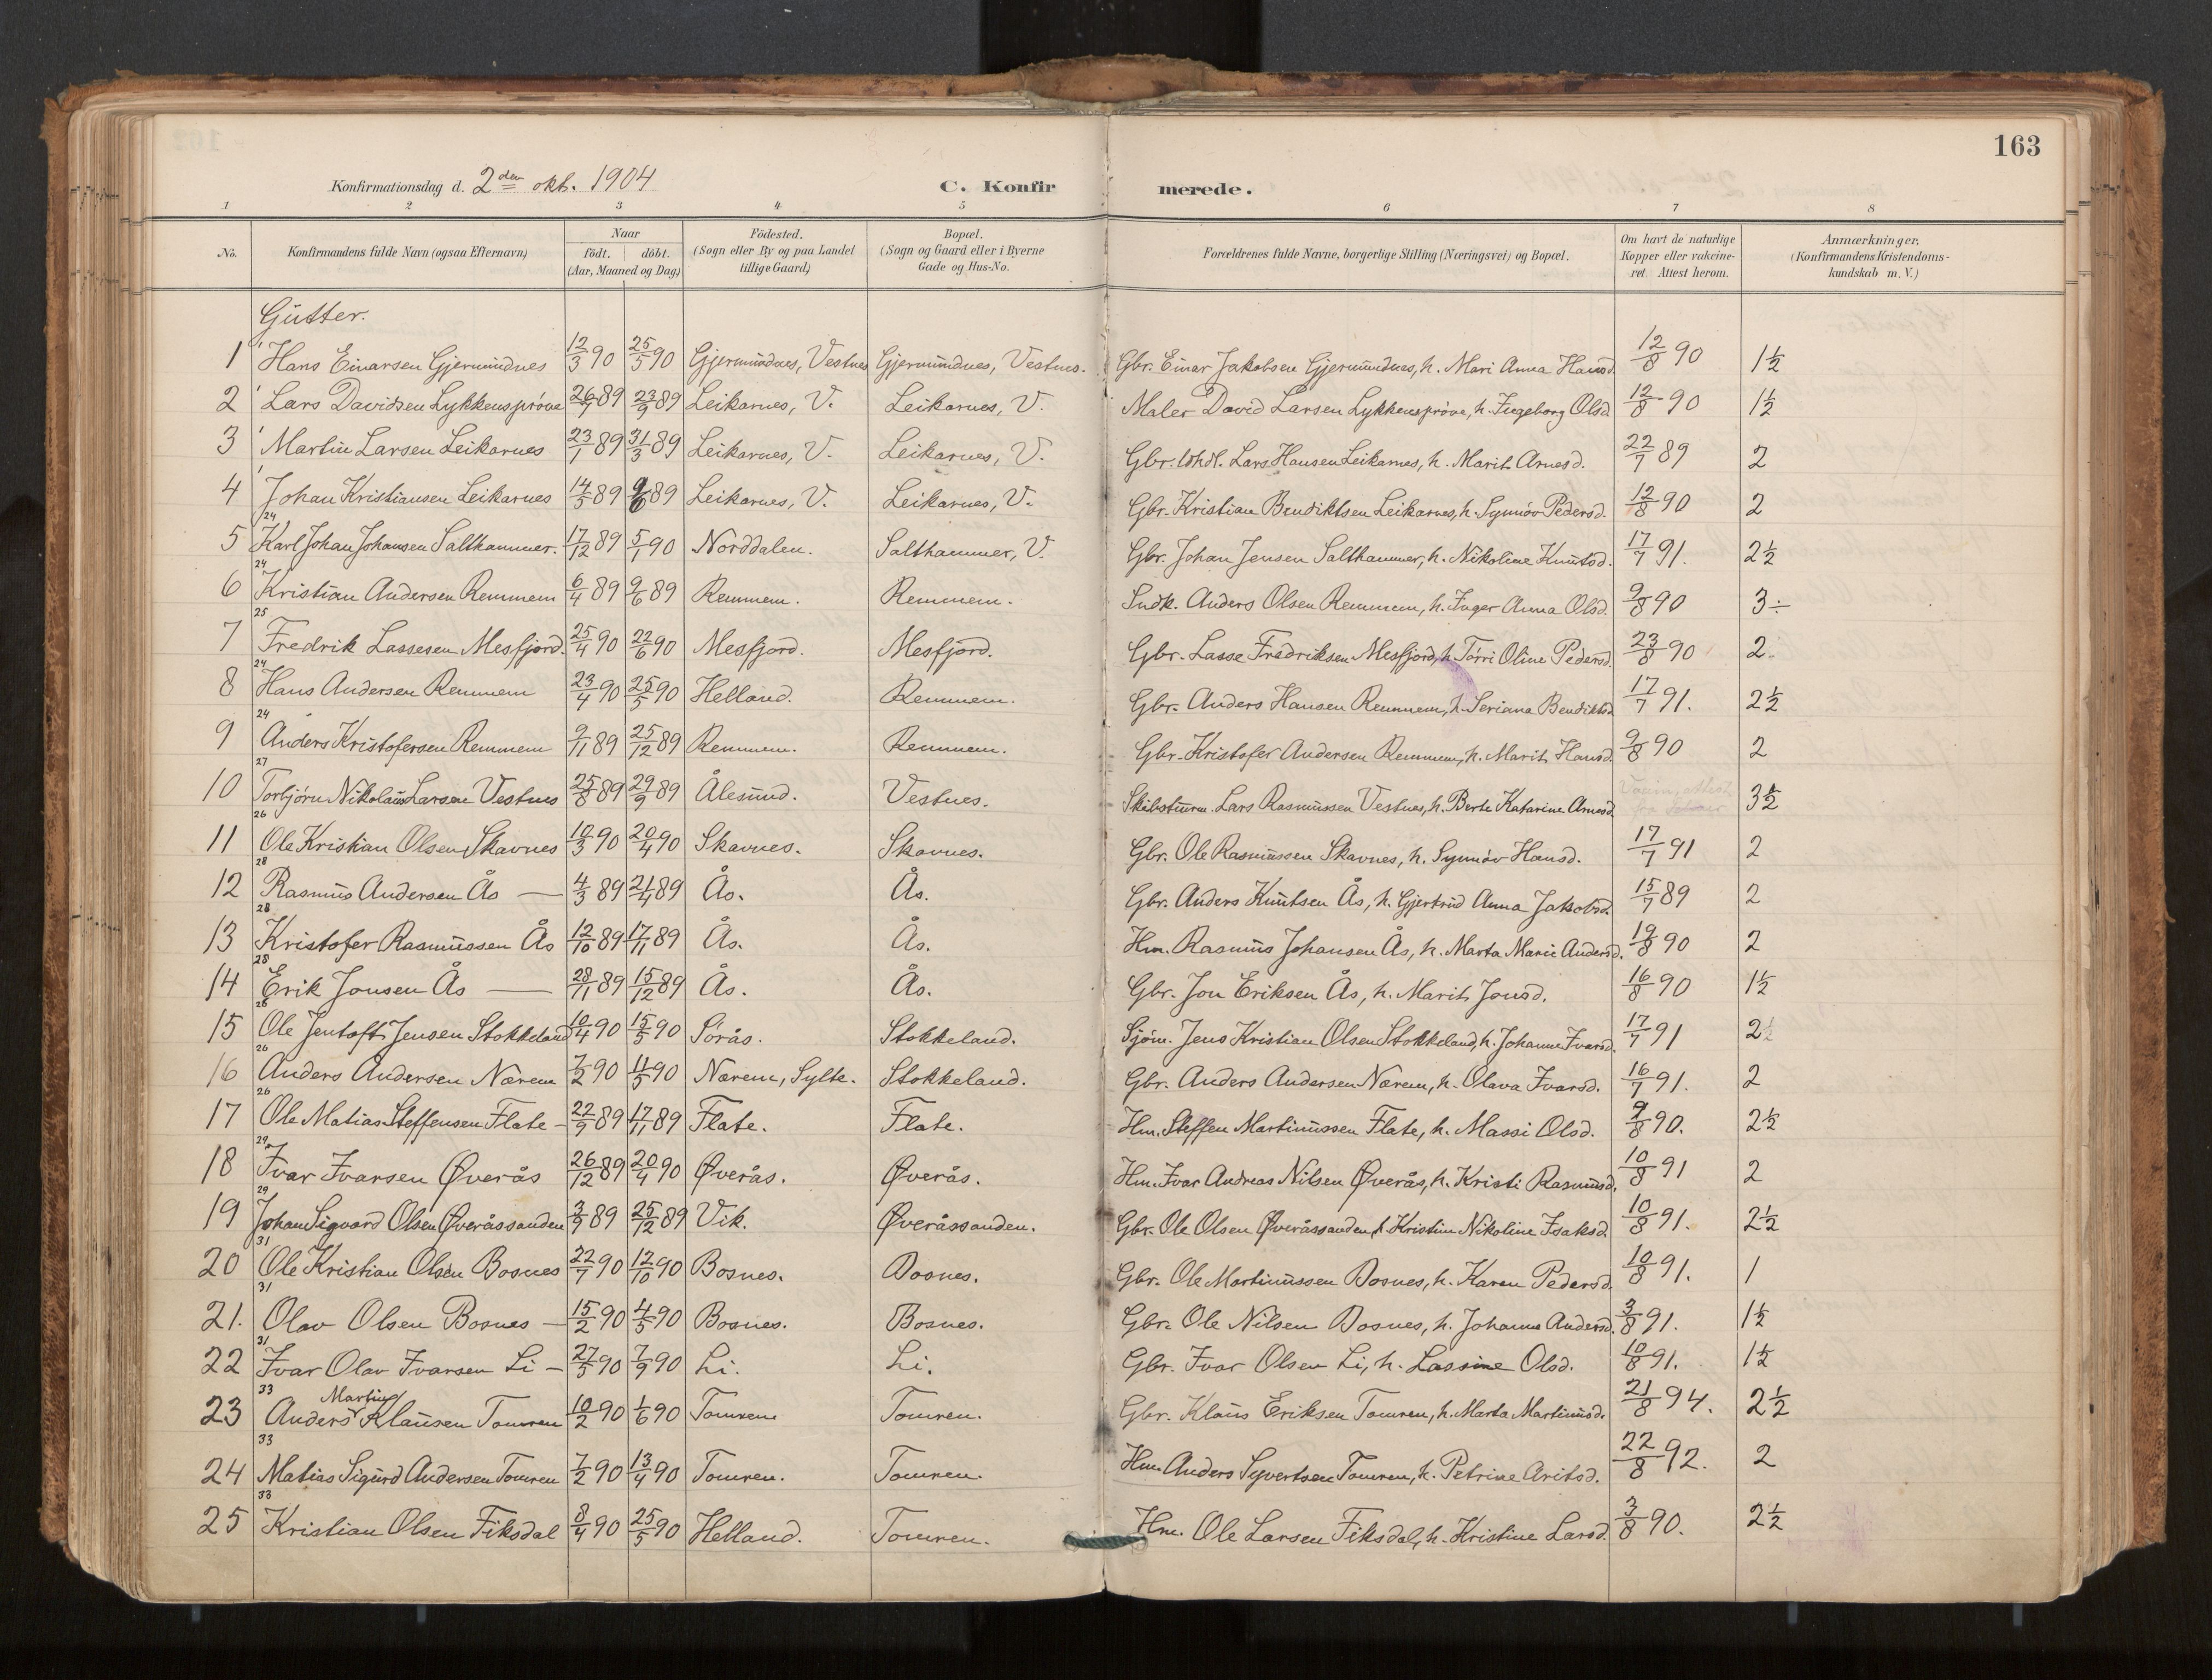 163
Konfirmationsdag d. 2den okt. 1904 C. Konfirmerede.
1 2 3 4 5 6 7 8
No. Konfirmandens fulde Navn (ogsaa Efternavn) Naar födt. döbt. (Aar, Maaned og Dag) Födested. (Sogn eller By og paa Landet tillige Gaard) Bopæl. (Sogn og Gaard eller i Byerne Gade og Hus-No. Forældrenes fulde Navne, borgerlige Stilling (Næringsvei) og Bopæl. Om havt de naturlige Kopper eller vakcineret. Attest herom. Anmærkninger. (Konfirmandens Kristendomskundskab m. V.)
Gutter.
1 Hans Einarsen Gjermundnes 12/3 90 25/5 90 Gjermundnes, Vestnes Gjermundnes, Vestnes. Gbr. Einar Jakobsen Gjermundnes, h. Mari Anna Hansd. 12/8 90 1½
2 Lars Davidsen Lykkensprøve 26/7 89 23/9 89 Leikarnes, V. Leikarnes, V. Maler David Larsen Lykkensprøve, h. Ingeborg Olsd. 12/8 90 1½
3 Martin Larsen Leikarnes 23/1 89 31/3 89 Leikarnes, V. Leikarnes, V. Gbr. Lars Hansen Leikarnes, h. Marit Arnesd. 22/7 89 2
4 Johan Kristiansen Leikarnes 14/5 89 9/6 89 Leikarnes, V. Leikarnes, V. Gbr. Kristian Bendiktsen Leikarnes, h. Synnøv Pedersd. 12/8 90 2
24
5 Karl Johan Johansen Salthammer. 17/12 89 5/1 90 Norddalen. Salthammer, V. Gbr. Johan Jensen Salthammer, h. Nikoline Knutsd. 17/7 91. 2½
24
6 Kristian Andersen Remmem 6/4 89 9/6 89 Remmem. Remmem. Indk. Anders Olsen Remmem, h. Inger Anna Olsd. 9/8 90 3÷
25
7 Fredrik Lassesen Mesfjord. 25/4 90 22/6 90 Mesfjord. Mesfjord. Gbr. Lasse Fredriksen Mesfjord, h. Tørri Oline Pedersd. 23/8 90 2.
24
8 Hans Andersen Remmem 23/4 90 25/5 90 Helland. Remmem. Gbr. Anders Hansen Remmem, h. Seriana Bendiktsd. 17/7 91. 2½
24
9 Anders Kristofersen Remmem 9/11 89 25/12 89 Remmem. Remmem. Gbr. Kristofer Andersen Remmem, h. Marit Hansd. 9/8 90 2
27
10 Torbjørn Nikolaus Larsen Vestnes 25/8 89 29/9 89 Ålesund. Vestnes. Skibsturm. Lars Rasmussen Vestnes, h. Berte Katarine Arnesd. 3½
26
11 Ole Kristian Olsen Skavnes 10/3 90 20/4 90 Skavnes. Skavnes. Gbr. Ole Rasmussen Skavnes, h. Synnøv Hansd. 17/7 91 2
28
12 Rasmus Andersen Ås — 4/3 89 21/4 89 Ås. Ås. Gbr. Anders Knutsen Ås, h. Gjertrud Anna Jakobsd. 15/7 89 2
28
13 Kristofer Rasmussen Ås 12/10 89 17/11 89 Ås. Ås. Hm. Rasmus Johansen Ås, h. Marta Marie Andersd. 19/8 90 2
28
14 Erik Jonsen Ås — 28/11 89 15/12 89 Ås. Ås. Gbr. Jon Eriksen Ås, h. Marit Jonsd. 16/8 90 1½
26
15 Ole Jentoft Jensen Stokkeland 10/4 90 15/5 90 Sørås. Stokkeland. Sjøm. Jens Kristian Olsen Stokkeland, h. Johanne Ivarsd. 17/7 91 2½
26
16 Anders Andersen Nærem 7/2 90 4/5 90 Nærem, Sylte. Stokkeland. Gbr. Anders Andersen Nærem, h. Olava Ivarsd. 16/7 91. 2
26
17 Ole Matias Steffensen Flate - 22/9 89 17/11 89 Flate. Flate. Hm. Steffen Martinussen Flate, h. Massi Olsd. 9/8 90. 2½
29
18 Ivar Ivarsen Øverås 26/12 89 20/4 90 Øverås. Øverås. Hm. Ivar Andreas Nilsen Øverås, h. Kristi Rasmusd. 10/8 91 2
29
19 Johan Sigvard Olsen Øveråssanden 3/9 89 25/12 89 Vik. Øveråssanden. Gbr. Ole Olsen Øveråssanden, h. Kristine Nikoline Isaksd. 10/8 91. 2½
31
20 Ole Kristian Olsen Bosnes 22/7 90 12/10 90 Bosnes. Bosnes. Gbr. Ole Martinussen Bosnes, h. Karen Pedersd. 10/8 91. 1
31
21. Olav Olsen Bosnes — 15/2 90 4/5 90 Bosnes. Bosnes. Gbr. Ole Nilsen Bosnes, h. Johanna Andersd. 3/8 91. 1½
31
22 Ivar Olav Ivarsen Li — 27/5 90 7/9 90 Li. Li. Gbr. Ivar Olsen Li, h. Lassine Olsd. 10/8 91. 1½
33 Martin
23 Anders Klausen Tomren 10/2 90 1/6 90 Tomren Tomren. Gbr. Klaus Eriksen Tomren, h. Marta Martinusd. 21/8 94. 2½
33
24 Matias Sigurd Andersen Tomren 7/2 90 13/4 90 Tomren. Tomren. Hm. Anders Syvertsen Tomren, h. Petrine Aritsd. 22/8 92. 2
33
25 Kristian Olsen Fiksdal 8/4 90 25/5 90 Helland. Tomren. Hm. Ole Larsen Fiksdal, h. Kristine Larsd. 3/8 90. 2½